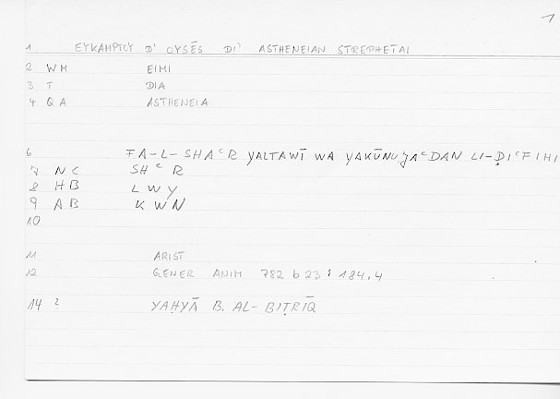 1
1 EYKAMPTOY D' OYSĒS DI' ASTHENEIAN STREPHETAI
2 WM EIMI
3 T DIA
4 QA ASTHENEIA
6 FA-L-SHAᶜR YALTAWĪ WA YAKŪNU JAᶜDAN LI-ḌIᶜFIHI
7 NC SHᶜR
8 HB LWY
9 AB KWN
10
11 ARIST
12 GENER ANIM 782 b 23 : 184,4
14 ? YAḤYĀ B. AL-BIṬRĪQ